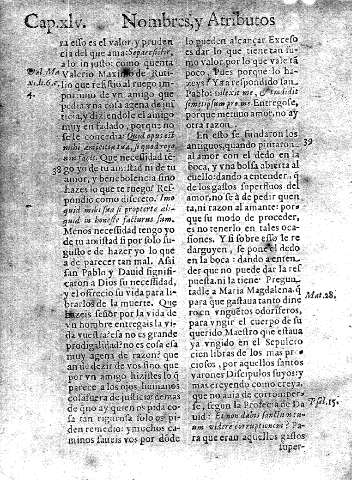 Cap.xlv. Nombres, y Atributos
ra esso es el valor, y pruden
cia del que ama. Separesse
a lo injusto: como quenta
Valerio Maximo de Ruti-
Val. Ma
lio que resistio al ruego im-
xi. li. 6. c.
portuno de vn amigo que
4.
pedia vna cosa agena de jus
ticia, y diziendole el amigo
muy enfadado, porque no
se le concedia: Quid opus est
mihi amicitia tua, si quod rogo
non facis. Que necessidad tē
go yo de tu amistad ni de tu
38
amor, y beneuolencia sino
hazes lo que te ruego? Res-
pondio como discreto. Imo
quid mihi tua si propter te aliquid
in honeste facturus sum.
Menos necessidad tengo yo
de tu amistad si por solo su
gusto e de hazer yo lo que
a de parecer tan mal. Assi
san Pablo y Dauid signifi-
caron a Dios su necessidad,
y el ofrecio su vida para li-
brarlos de la muerte. Que
hazeis señor por la vida de
vn hombre entregais la vi-
da vuestra? esa no es grande
prodigalidad? no es cosa esa
muy agena de razon? que
an de dezir de vos sino que
por vn amigo hizistes lo q̄
parece a los ojos humanos
cosa fuera de justicia: demas
de q̄ no ay quien os pida co
sa tan rigurosa solo os pi-
den remedio: y muchos ca-
minos faueis vos por dōde
lo pueden alcançar. Excesso
es dar lo que tiene tan su-
mo valor por lo que vale tā
poco, Pues porque lo ha-
zeys? Ya respondido san
Pablo: dilexit me, & tradidit
semetipsum pro me. Entregose,
porque me tuuo amor, no ay
otra razon.
En esto se fundaron los
39
antiguos, quando pintaron
al amor con el dedo en la
boca, y vna bolsa abierta al
cuello: dando a entender, q̄
de los gastos superfluos del
amor, no se â de pedir quen
ta ni razon al amante: por
que su modo de proceder,
es no tenerlo en tales oca-
siones. Y si sobre esto le re
darguyen, se pone el dedo
en la boca: dando a enten-
der que no puede dar la res
puesta, ni la tiene. Pregun
talle a Maria Magdalena, q̄
Mat. 28.
para que gastaua tanto dine
ro en vnguētos odoriferos,
para vngir el cuerpo de su
querido Maestro que estaua
ya vngido en el Sepulcro
cien libras de los mas pre-
ciosos, por aquellos santos
varones Discipulos suyos: y
mas creyendo como creya,
que no auia de corromper-
se, segun la Profecia de Da
Psal. 15.
uid: Et non dabis sanctum tu-
um videre corruptionem? Pa-
ra que eran aquellos gastos
super-